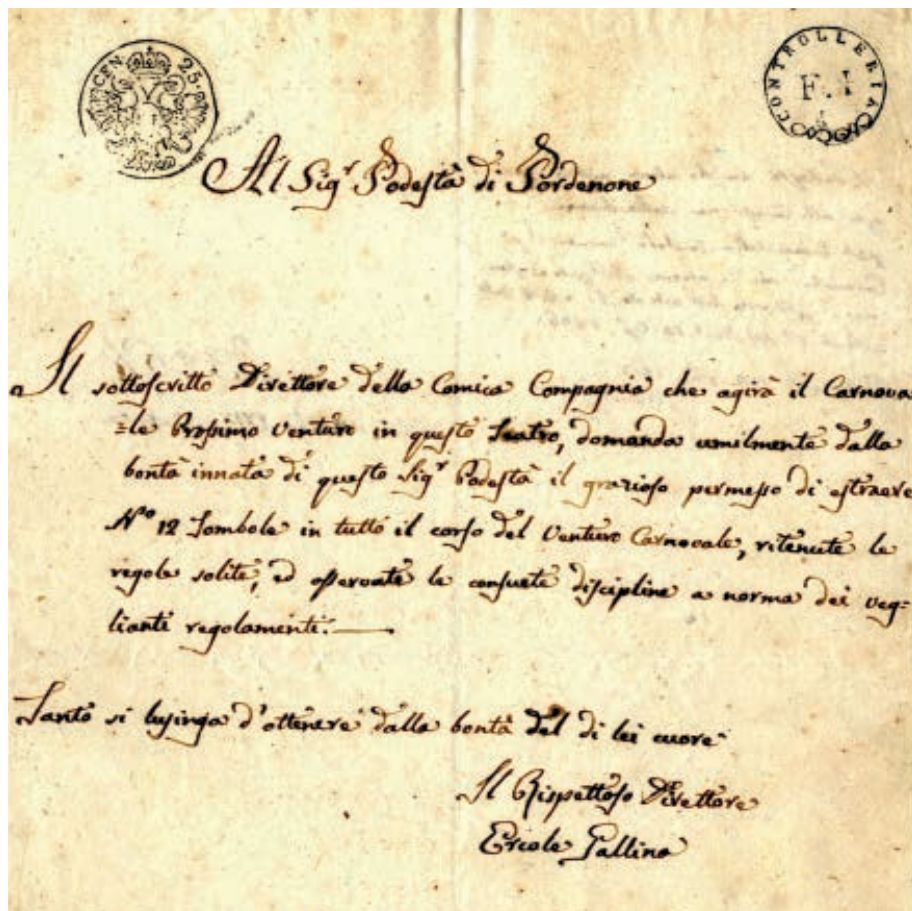 CEN. 25.
CONTROLLERIA
F. I
Al Sig.r Podestà di Pordenone
Il sottoscritto Direttore della Comica Compagnia che agirà il Carnova
=le Prossimo venturo in questo Teatro, domanda umilmente dalla
bontà innata di questo Sig.r Podestà il grazioso permesso di estraere
N.o 12 Tombole in tutto il corso del venturo Carnovale, ritenute le
regole solite, ed osservate le consuete discipline a norma dei veg=
lianti regolamenti.
Tanto si lusinga d'ottenere dalla bontà del di lei cuore
Il Rispettoso Direttore
Ercole Gallina